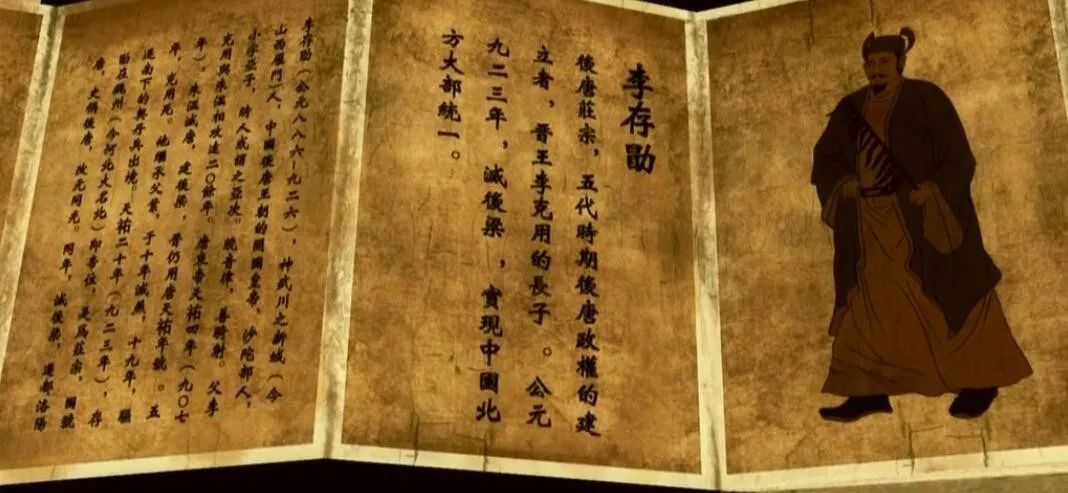 李存勖
後唐莊宗，五代時期後唐政權的建
立者，晉王李克用的長子。公元
九二三年，滅後梁，實現中國北
方大部統一。
李存勖（公元八八六—九二六），神武川之新城（今
山西雁門）人，中國後唐王朝的開國皇帝，沙陀部人，
小字亞子，時人或謂之亞次。曉音律，善騎射。父李
克用與朱溫相攻達二〇餘年。唐哀帝天祐四年（九〇七
年），朱溫滅唐，建後梁，晉仍用唐天祐年號。五
年，克用死。他繼承父業，于十年滅燕，十九年，驅
逐南下的契丹兵出境。天祐二十年（九二三年），存
勖在魏州（今河北大名北）即帝位，是爲莊宗，國號
唐，史稱後唐，改元同光。同年，滅後梁，遷都洛陽